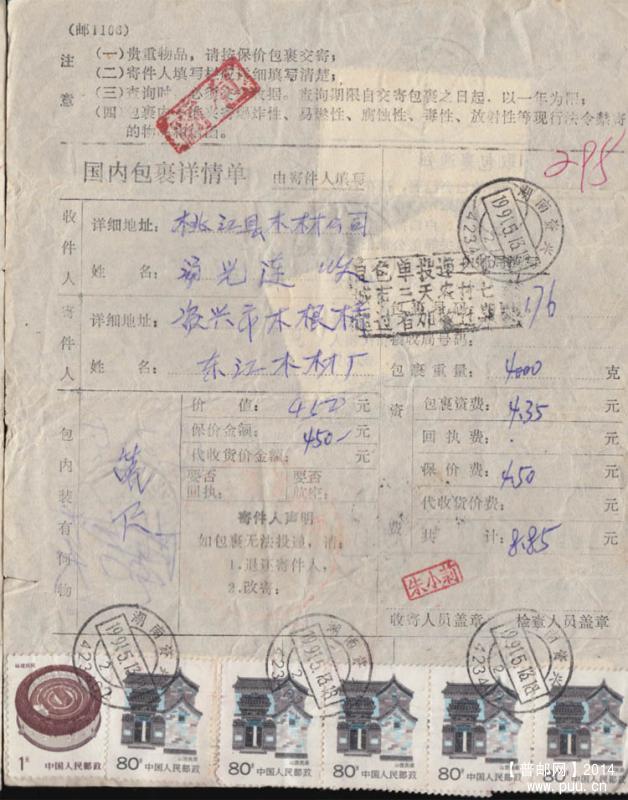 (邮1106)
注意
(一)贵重物品,请按保价包裹交寄;
(二)寄件人填写 细填写清楚;
(三)查询时 据。查询期限自交寄包裹之日起,以一年为限;
(四)包裹内 爆炸性、易燃性、腐蚀性、毒性、放射性等现行法令禁寄
的物
295
国内包裹详情单 由寄件人填写
湖南资兴
1991.5.13.18
收件人
详细地址: 桃江县木材公司
姓 名: 光莲
寄件人
详细地址: 资兴市木根桥
姓 名: 东江木材厂
176
接收局号码:
包裹重量: 4000 克
包内装有何物
价 值: 450 元
保价金额: 450— 元
代收货价金额: 元
要否回执: 要否
资费
包裹资费: 4.35 元
回执费: 元
保价费: 4.50 元
代收货价费: 元
共 计: 8.85 元
寄件人声明
如包裹无法投递,请:
1.退还寄件人,
2.改寄:
收寄人员盖章 检查人员盖章
湖南资兴
1991.5.13.18
湖南资兴
1991.5.13.18
南资兴
1991.5.13.18
福建民居
1分 中国人民邮政
80分 中国人民邮政
80分 中国人民邮政
80分 中国人民邮政
80分 中国人民邮政
80分 中国人民
【普邮网】2014
www.puu.cn